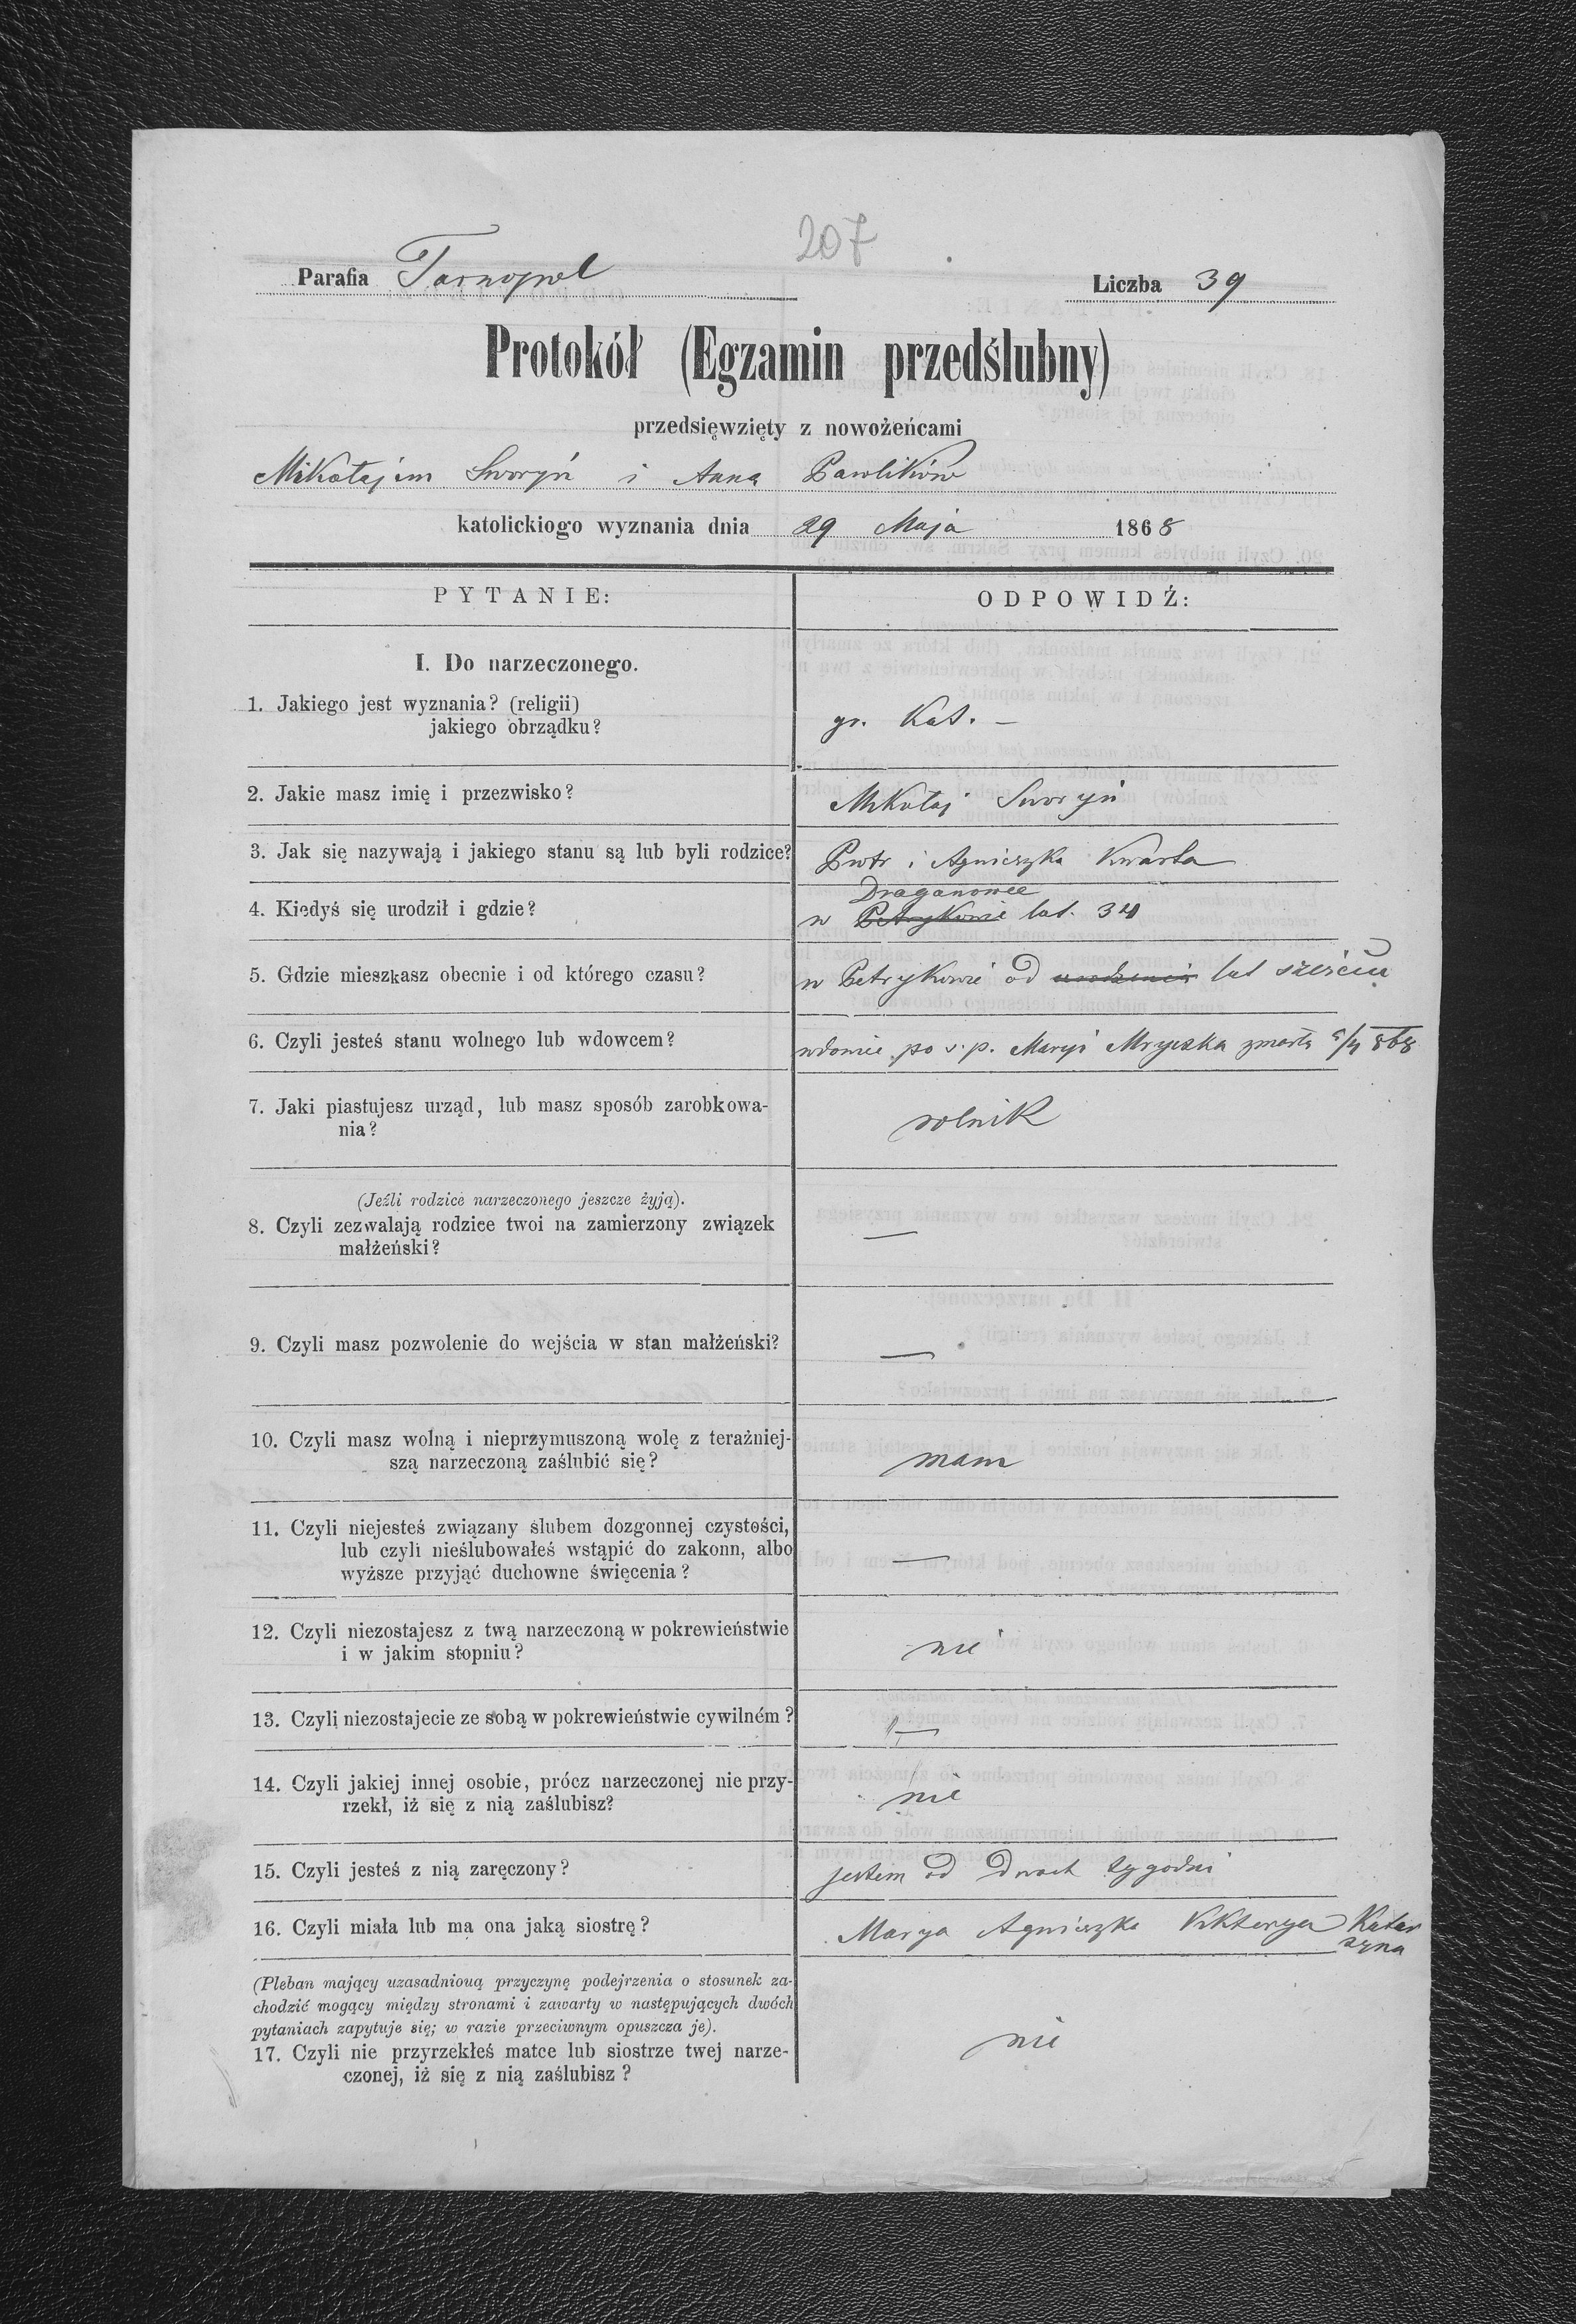 207
Parafia Tarnopol
Liczba 39
Protokół (Egzamin przedślubny)
przedsięwzięty z nowożeńcami
Mikołajem Sworyń i Anną Pawlików
katolickiogo wyznania dnia 29 Maja 1868
PYTANIE:
ODPOWIDŹ:
I. Do narzeczonego.
1. Jakiego jest wyznania? (religii)
jakiego obrządku?
gr. Kat. –
2. Jakie masz imię i przezwisko?
Mikołaj Sworyń
3. Jak się nazywają i jakiego stanu są lub byli rodzice?
Piotr i Agnieszka Kwarta
Draganowce
4. Kiedyś się urodził i gdzie?
w Petrykowie lat. 34
5. Gdzie mieszkasz obecnie i od którego czasu?
w Petrykowie od urodzenia lat sześciu
6. Czyli jesteś stanu wolnego lub wdowcem?
wdowiec po ś. p. Maryi Mryczka zmarła 5/4 868
7. Jaki piastujesz urząd, lub masz sposób zarobkowa-
nia?
rolnik
(Jeźli rodzice narzeczonego jeszcze żyją).
8. Czyli zezwalają rodzice twoi na zamierzony związek
małżeński?
—
9. Czyli masz pozwolenie do wejścia w stan małżeński?
—
10. Czyli masz wolną i nieprzymuszoną wolę z teraźniej-
szą narzeczoną zaślubić się?
mam
11. Czyli niejesteś związany ślubem dozgonnej czystości,
lub czyli nieślubowałeś wstąpić do zakonn, albo
wyższe przyjąć duchowne święcenia?
—
12. Czyli niezostajesz z twą narzeczoną w pokrewieństwie
i w jakim stopniu?
nie
13. Czyli niezostajecie ze sobą w pokrewieństwie cywilném?
"—
14. Czyli jakiej innej osobie, prócz narzeczonej nie przy-
rzekł, iż się z nią zaślubisz?
nie
15. Czyli jesteś z nią zaręczony?
jestem od dwoch tygodni
16. Czyli miała lub ma ona jaką siostrę?
Marya Agnieszka Wiktorya Katar
zyna
(Pleban mający uzasadnioną przyczynę podejrzenia o stosunek za-
chodzić mogący między stronami i zawarty w następujących dwóch
pytaniach zapytuje się; w razie przeciwnym opuszcza je).
17. Czyli nie przyrzekłeś matce lub siostrze twej narze-
czonej, iż się z nią zaślubisz?
nie